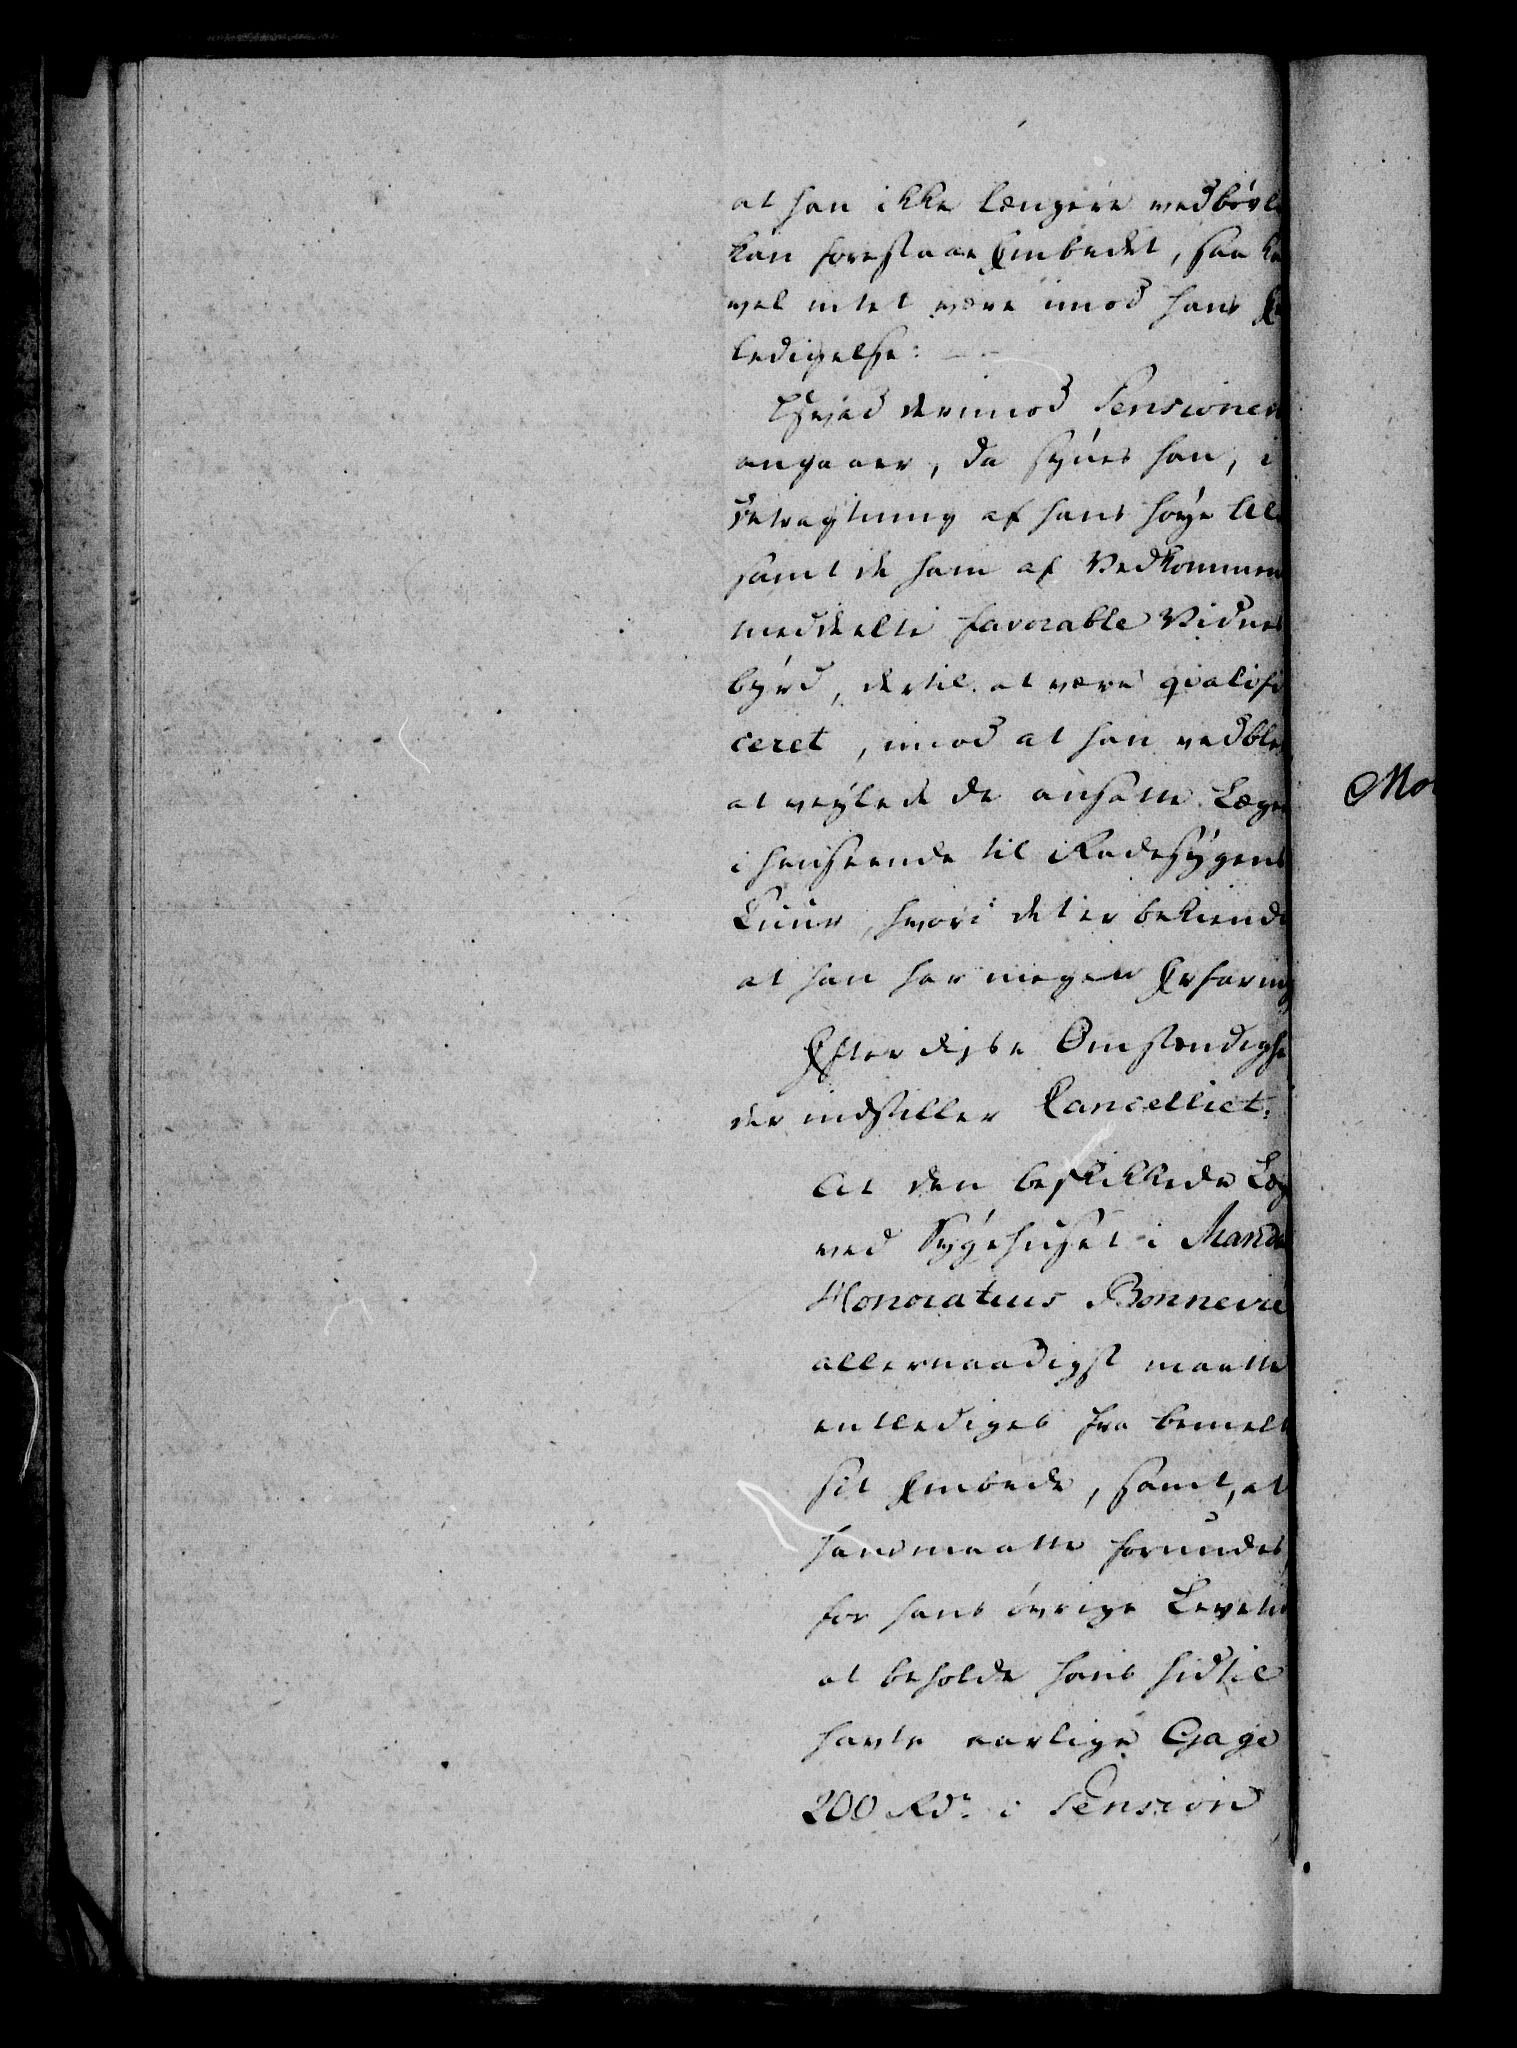 at han ikke længere vedbörl
kan forestaae Embedet, saa ka
vel intet være imod hans E
ledigelse:
Hvad derimod Pensionen
angaaer, da synes han, i
Betragtning af hans höye Al
samt de ham af Vedkommen
meddeelte favorable Vidnes
byrd, dertil at være qvalifi
ceret, imod at han vedble
at veylede de ansatte Læge
i henseende til Radesygens
Cuur, hvori det er bekiendt
at han har megen Erfaring
Efter disse Omstændighe
der indstiller Cancelliet:
At den beskikkede Læg
ved Sygehuset i Manda
Honoratius Bonnevie
allernaadigst maatte
entlediges fra bemelt
sit Embede, samt, at
maatte forundes
for hans övrige Levetid
at beholde hans hidtil
havte aarlige Gage
200 Rdr i Pension
Mo